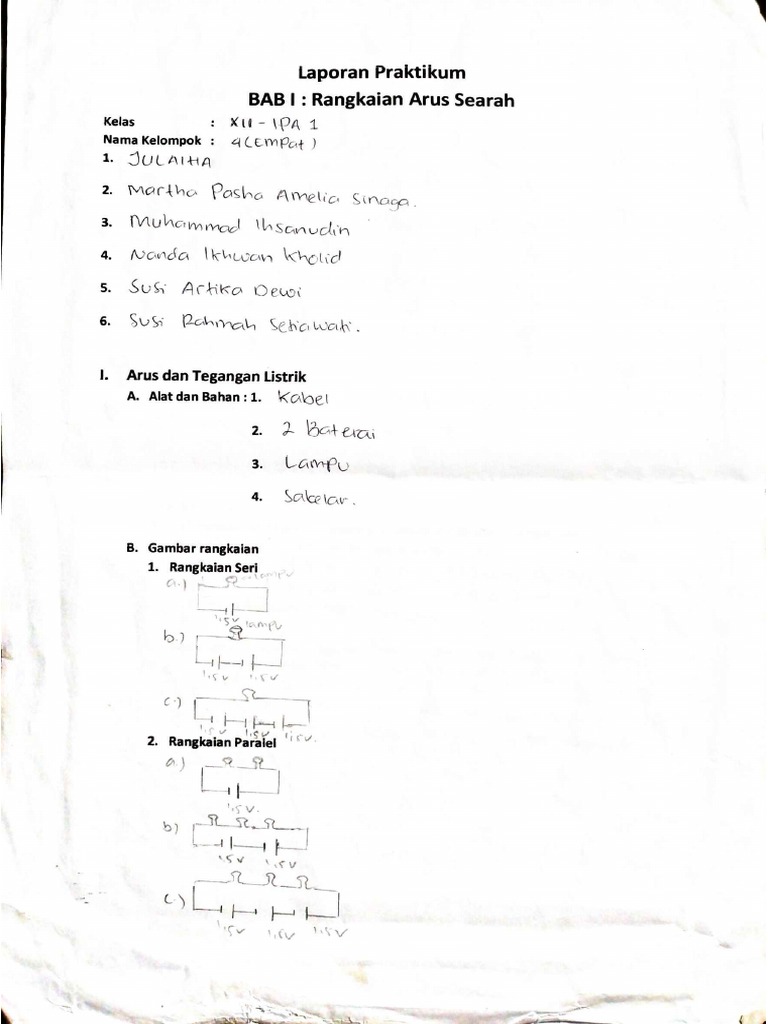 Laporan Praktikum
BAB I : Rangkaian Arus Searah
Kelas : XII - IPA 1
Nama Kelompok : 4 (EmPat)
1. JULAIHA
2. Martha Pasha Amelia Sinaga.
3. Muhammad Ihsanudin
4. Nanda Ikhwan Kholid
5. Susi Artika Dewi
6. Susi Rahmah Setiawati.
I. Arus dan Tegangan Listrik
A. Alat dan Bahan : 1. Kabel
2. 2 Baterai
3. Lampu
4. Sakelar.
B. Gambar rangkaian
1. Rangkaian Seri
a.) lampu
1.5 V
lampu
b.)
1.5 V 1.5 V
c.)
1.5 V 1.5 V 1.5 V.
2. Rangkaian Paralel
a.)
1.5 V.
b)
1.5 V 1.5 V
c.)
1.5 V 1.5 V 1.5 V